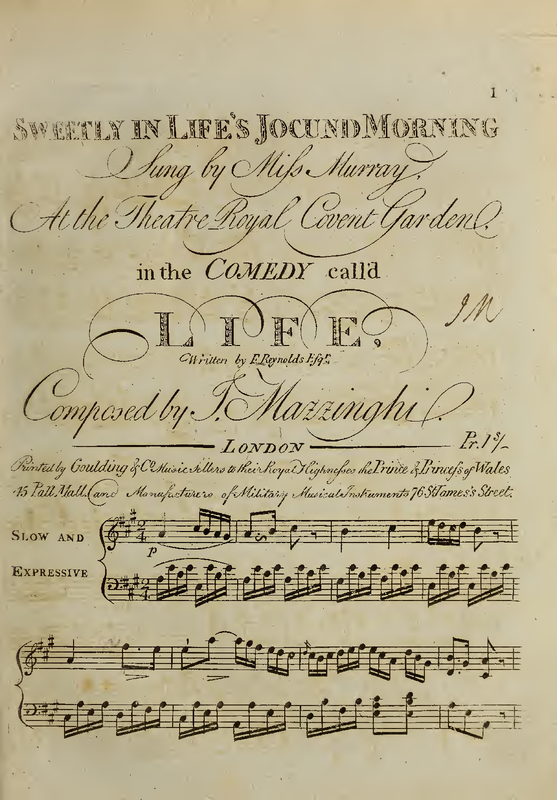 1
SWEETLY IN LIFE'S JOCUND MORNING
Sung by Miſs Murray,
At the Theatre Royal Covent Garden.
in the COMEDY call'd
LIFE,
Written by F. Reynolds Eſqr.
JM
Composed by J. Mazzinghi.
LONDON Pr. 1s/-
Printed by Goulding & Co. Music Sellers to their Royal Highneſses the Prince & Princeſs of Wales
45 Pall Mall, and Manufacturers of Military Musical Instruments 76 St James's Street.
SLOW AND
EXPRESSIVE
2 4
p
2 4